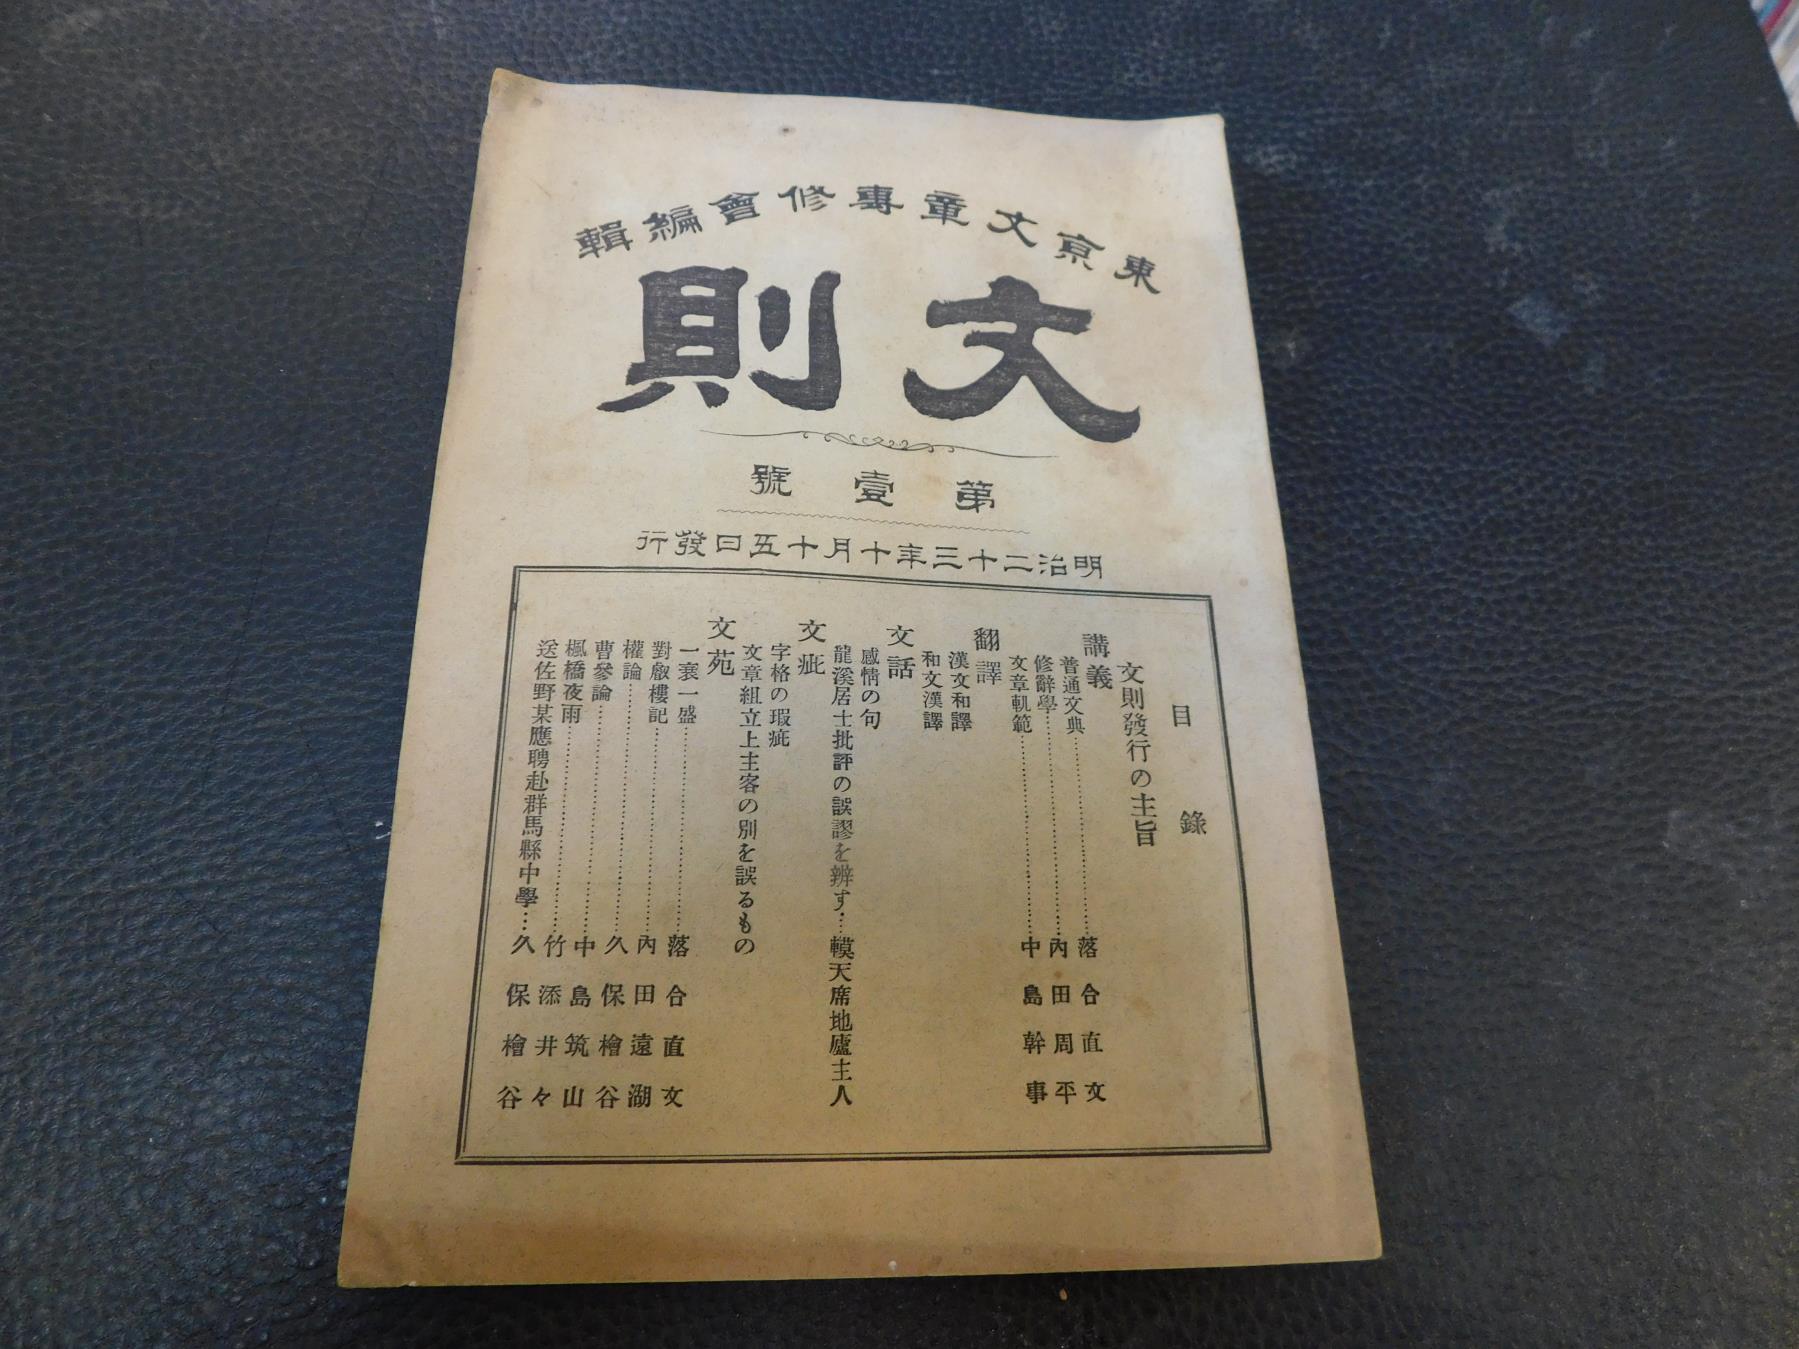 東京文章專修會編輯
文則
第壹號
明治二十三年十月十五日發行
目錄
文則發行の主旨
講義
普通文典………落合直文
修辭學………內田周平
文章軌範………中島幹事
翻譯
漢文和譯
和文漢譯
文話
感情の句
龍溪居士批評の誤謬を辨す…幕天席地廬主人
文疵
字格の瑕疵
文章組立上主客の別を誤るもの
文苑
一衰一盛………落合直文
對嶽樓記………內田遠湖
權論………久保檜谷
曹參論………中島筑山
楓橋夜雨………竹添井々
送佐野某應聘赴群馬縣中學…久保檜谷